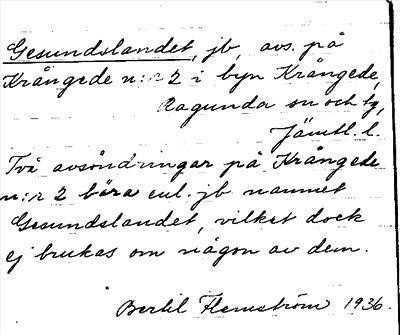 Gesundslandet, jb, avs. på
Krångede n:r 2 i byn Krångede,
Ragunda sn och tg,
Jämtl. l.
Två avsöndringar på Krångede
n:r 2 bära enl. jb namnet
Gesundslandet, vilket dock
ej brukas om någon av dem.
Bertil Flemström 1936.